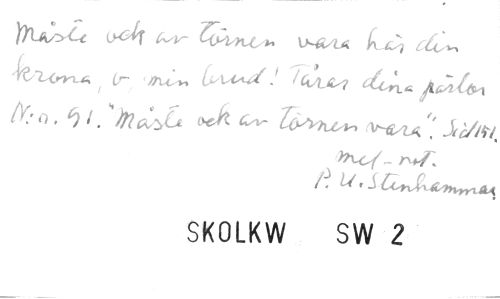 Måste ock av törnen vara här din
krona, o, min brud! Tårar dina pärlor
N:o. 91. "Måste ock av törnen vara". Sid 151.
mel-not.
P. U. Stenhammar.
SKOLKW SW 2